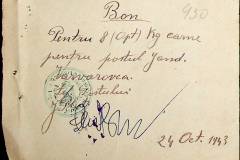 Bon
930
Pentru 8 (Opt) Kg carne
pentru postul Jand.
Varvarovca.
Șef Postului
24 Oct. 1943